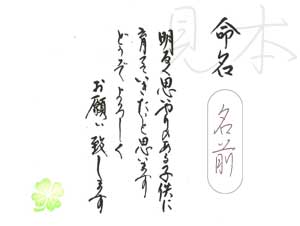 見本
命名
名前
明るく思いやりのある子供に
育てていきたいと思います
どうぞよろしく
お願い致します